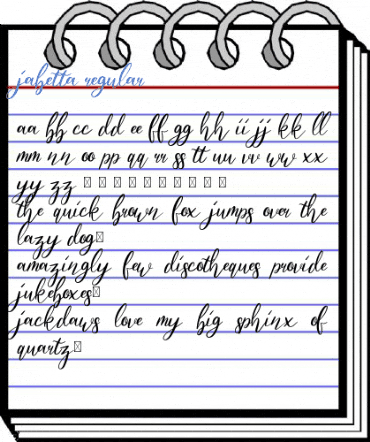 jabetta regular
aa bb cc dd ee ff gg hh ii jj kk ll
mm nn oo pp qq rr ss tt uu vv ww xx
yy zz □ □ □ □ □ □ □ □ □ □
the quick brown fox jumps over the
lazy dog□
amazingly few discotheques provide
jukeboxes□
jackdaws love my big sphinx of
quartz□